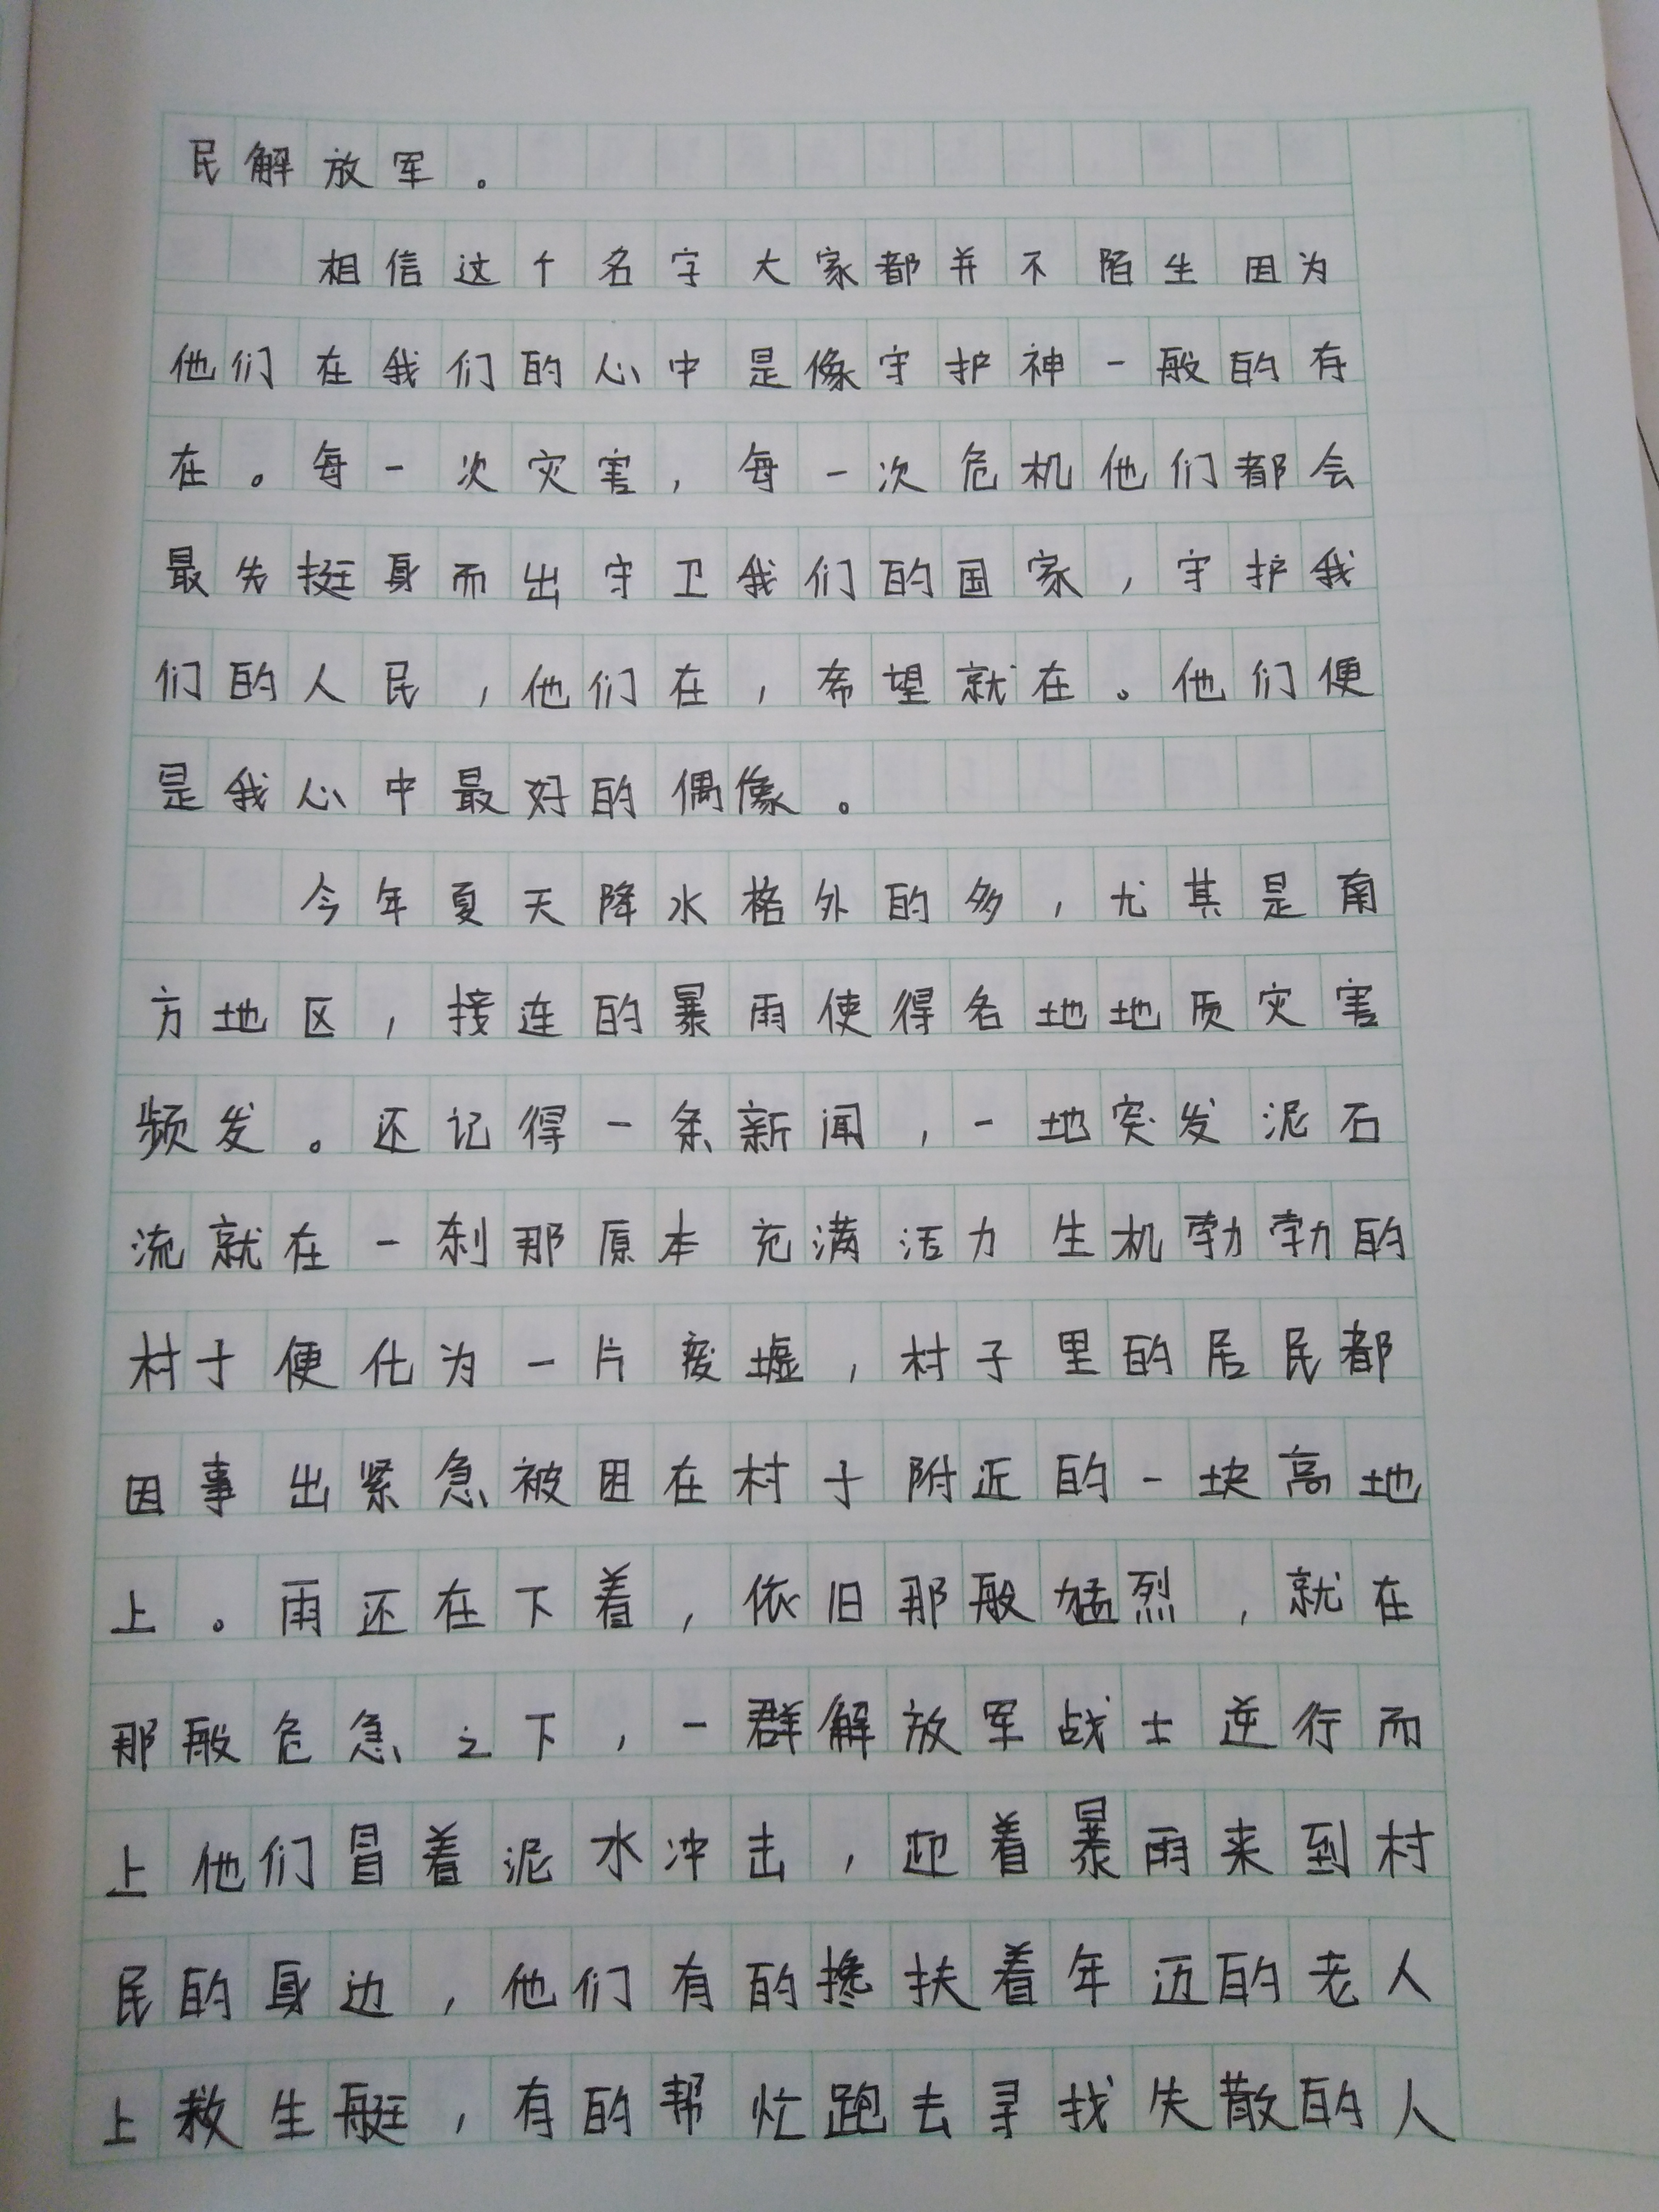 民解放军。
相信这个名字大家都并不陌生因为
他们在我们的心中是像守护神一般的存
在。每一次灾害，每一次危机他们都会
最先挺身而出守卫我们的国家，守护我
们的人民，他们在，希望就在。他们便
是我心中最好的偶像。
今年夏天降水格外的多，尤其是南
方地区，接连的暴雨使得各地地质灾害
频发。还记得一条新闻，一地突发泥石
流就在一刹那原本充满活力生机勃勃的
村子便化为一片废墟，村子里的居民都
因事出紧急被困在村子附近的一块高地
上。雨还在下着，依旧那般猛烈，就在
那般危急之下，一群解放军战士逆行而
上他们冒着泥水冲击，迎着暴雨来到村
民的身边，他们有的搀扶着年迈的老人
上救生艇，有的帮忙跑去寻找失散的人